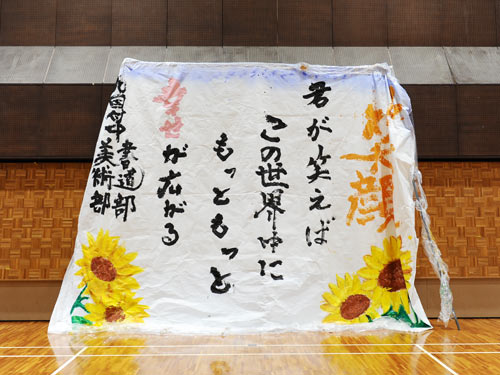 笑顔
君が笑えば
この世界中に
もっともっと
幸せ
が広がる
書道部
美術部